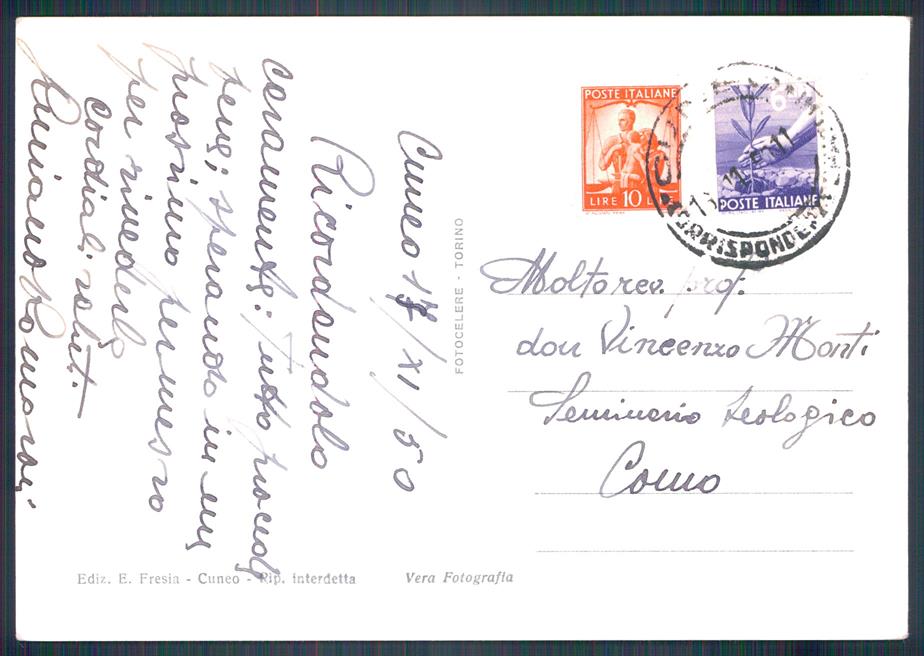 Cuneo 17/XI/50
Ricordandolo
caramente: Tutto procede
bene; sperando in un
prossimo permesso
per rivederla
cordiali saluti.
POSTE ITALIANE
LIRE 10
POSTE ITALIANE
CORRISPONDENZE
FOTOCELERE - TORINO
Molto rev. prof.
don Vincenzo Monti
Seminario teologico
Como
Ediz. E. Fresia - Cuneo - Rip. interdetta
Vera Fotografia